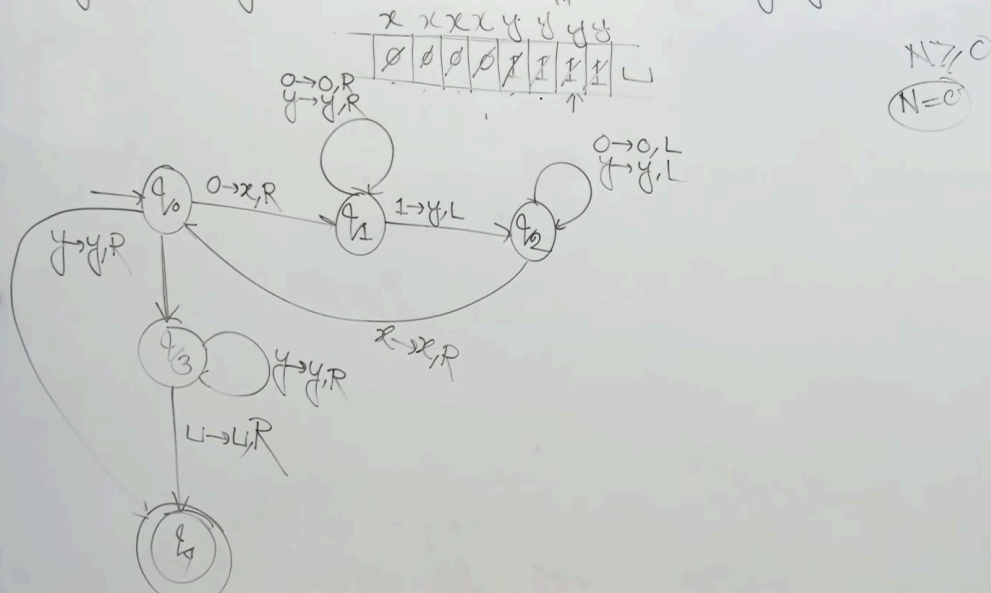 x x x x y y y y
0 0 0 0 1 1 1 1 ⊔
↑
N≥0
N=0
0→0,R
y→y,R
0→0,L
y→y,L
q0
0→x,R
q1
1→y,L
q2
y→y,R
x→x,R
q3
y→y,R
⊔→⊔,R
q4